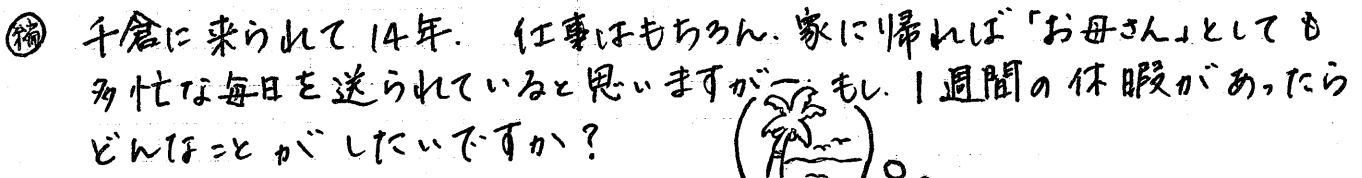 ㊙ 千倉に来られて14年. 仕事はもちろん、家に帰れば「お母さん」としても
多忙な毎日を送られていると思いますが―. もし、1週間の休暇があったら
どんなことがしたいですか?